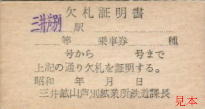 欠札証明書
三井芦別 駅
等 乗車券 種
号から 号まで
上記の通り欠札を証明する。
昭和 年 月 日
三井鉱山芦別鉱業所鉄道課長
見本